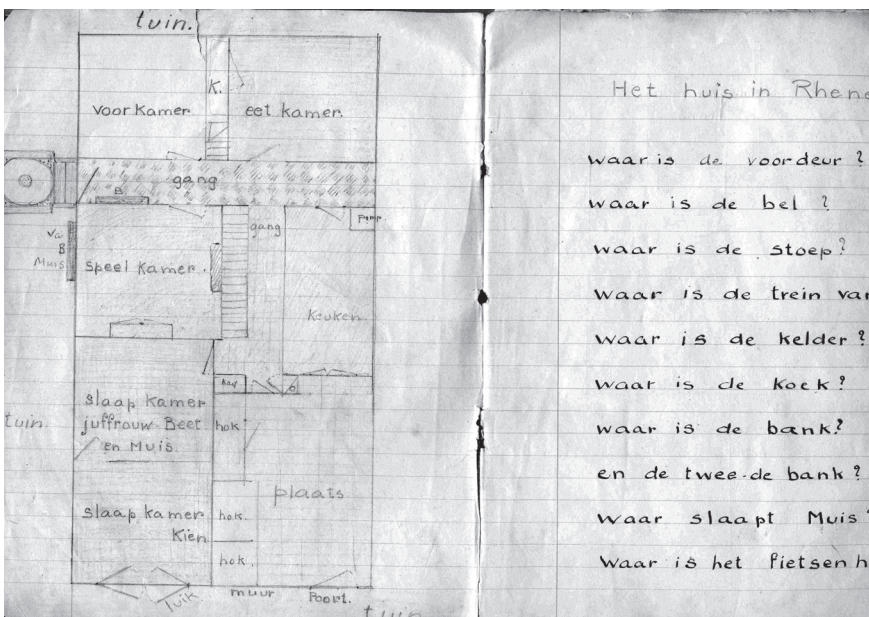 tuin.
K.
voor Kamer
eet kamer.
gang
B
gang
Pomp
Va
B
Muis
speel Kamer.
keuken
Kast
slaap Kamer
juffrouw Beet
en Muis.
tuin.
hok
plaats
slaap kamer
Kien
hok.
hok.
luik
muur
Poort.
tuin
Het huis in Rhene
waar is de voordeur?
waar is de bel ?
waar is de stoep?
waar is de trein van
waar is de kelder?
waar is de koek?
waar is de bank?
en de twee-de bank?
waar slaapt Muis?
waar is het fietsenh